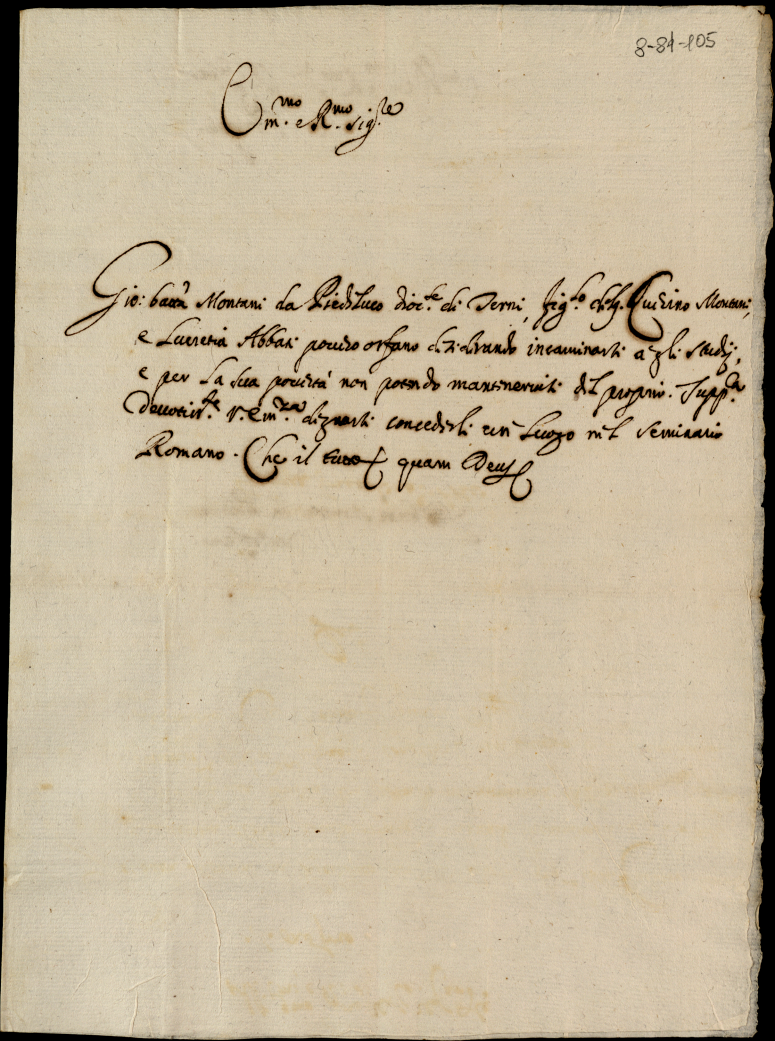 8-84-105
Em.mo e R.mo Sig.re
Gio: Batta Montani da Piediluco Dioc.se di Terni, fig.lo del q. Quirino Montani,
e Lucretia Abbati povero orfano desiderando incaminarsi agli studij,
e per la sua povertà non potendo mantenervisi del proprio. Supp.ca
Devotis.te V. Em.za degnarsi concederli un luogo nel Seminario
Romano. Che il tutto quam Deus